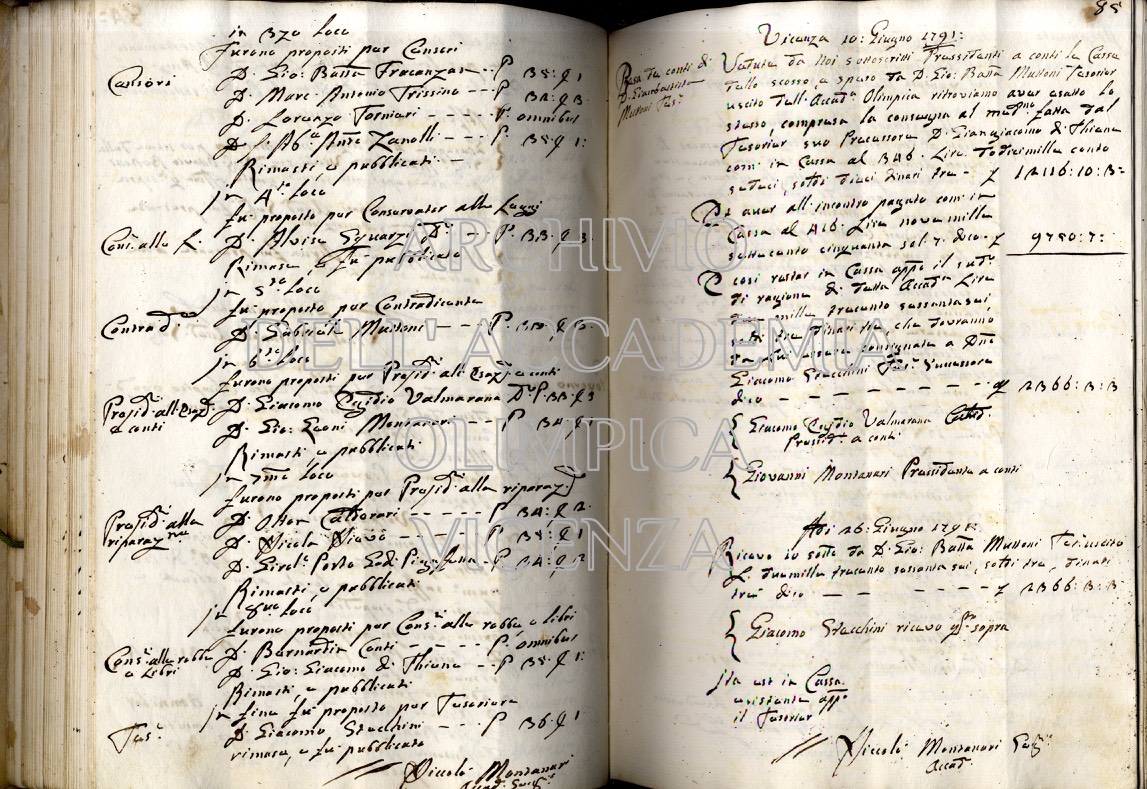 in 3zo Loco
furono proposti per Censori
Censori
D. Gio: Batta Fracanzan -- P. 35: C 1
D. Marc Antonio Trissino -- P. 32: C 3.
D. Lorenzo Torniari ---- P. omnibus
D. Ante Zanolli --- P. 35 C 1:
Rimasti e pubblicati -
in 4to Loco
fu proposto per Conservator alle Leggi
Cons: alle L.
D. Alvise Squarzi Dr --- P. 33. C 3.
Rimase, e fu pubblicato
in 5to Loco
fu proposto per Contradicente
Contrad
D. Gabriele Muttoni --- P.
in 6to Loco
furono proposti per Presid: all' Esaz: e conti
Presid: all: Esaz:
e conti
D. Giacomo Egidio Valmarana Dr P. 33 C 3
D. Gio: Leoni Montanari -- P. 34 C
Rimasti, e pubblicati
in 7mo Loco
furono proposti per Presid: alle riparaz
Presid: alle
riparaz
D. Otton Calderari ----- P. 34: C 2.
D. Nicola Nievo ---- P. 35: C 1
D. Girol: Porto --- P. 34: C 2
Rimasti, e pubblicati
in 8vo Loco
furono proposti per Cons: alle robbe, e libri
Cons: alle robbe
e Libri
D. Bernardin Conti ----- P. omnibus
D. Gio: Giacomo di Thiene -- P. 35. C 1:
Rimasti, e pubblicati
in fine fu proposto per Tesoriere
Tes:
D. Giacomo Stecchini --- P. 36 C 1
rimase, e fu pubblicato
Niccolò Montanari
85
Vicenza 10: Giugno 1791:
Resa de conti di
D. Giambattista
Muttoni Tes:
Veduta da Noi sottoscritti Pressidenti a conti la Cassa
dello scosso e speso da D. Gio: Batta Muttoni Tesorier
uscito dell' Accada Olimpica ritroviamo aver esatto lo
stesso, compresa la consegna al medmo fatta dal
Tesorier suo Precessore D. Giangiacomo di Thiene
come in Cassa al 346. Lire Dodicimille cento
sedeci, soldi dieci dinari tre - L 12116: 10: 3=
Ed aver all' incontro pagato come in
Cassa al 416. Lire nove mille
settecento cinquanta sol: 7. dico. L 9750: 7:
E così restar in Cassa appo il sudto
di ragione di detta Accada Lire
due mille trecento sessanta sei
soldi tre dinari tre che dovranno
da esser consegnate a Dno
Giacomo Stecchini Tes: Sucessore
dico - - - - - - - L 2366: 3: 3
Giacomo Egidio Valmarana
Presid: a conti
Giovanni Montanari Pressidente a conti
Adi 26: Giugno 1791:
Ricevo io sotto da D. Gio: Batta Muttoni Tes: uscito
L. duemille trecento sessanta sei, soldi tre, dinari
tre dico - - - - - - L 2366: 3: 3
Giacomo Stecchini ricevo qto sopra
Ita est in Cassa
esistente appo
il Tesorier
Niccolò Montanari
Accad:
ARCHIVIO
DELL'ACCADEMIA
OLIMPICA
VICENZA